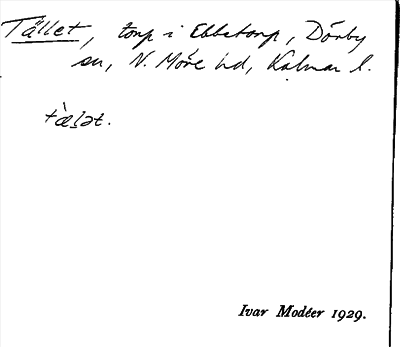 Tället, torp i Ebbetorp, Dörby
sn, N. Möre hd, Kalmar l.
tæ̀lət.
Ivar Modéer 1929.